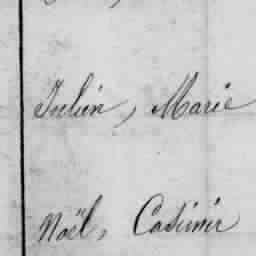 Julien, Marie
Noël, Casimir